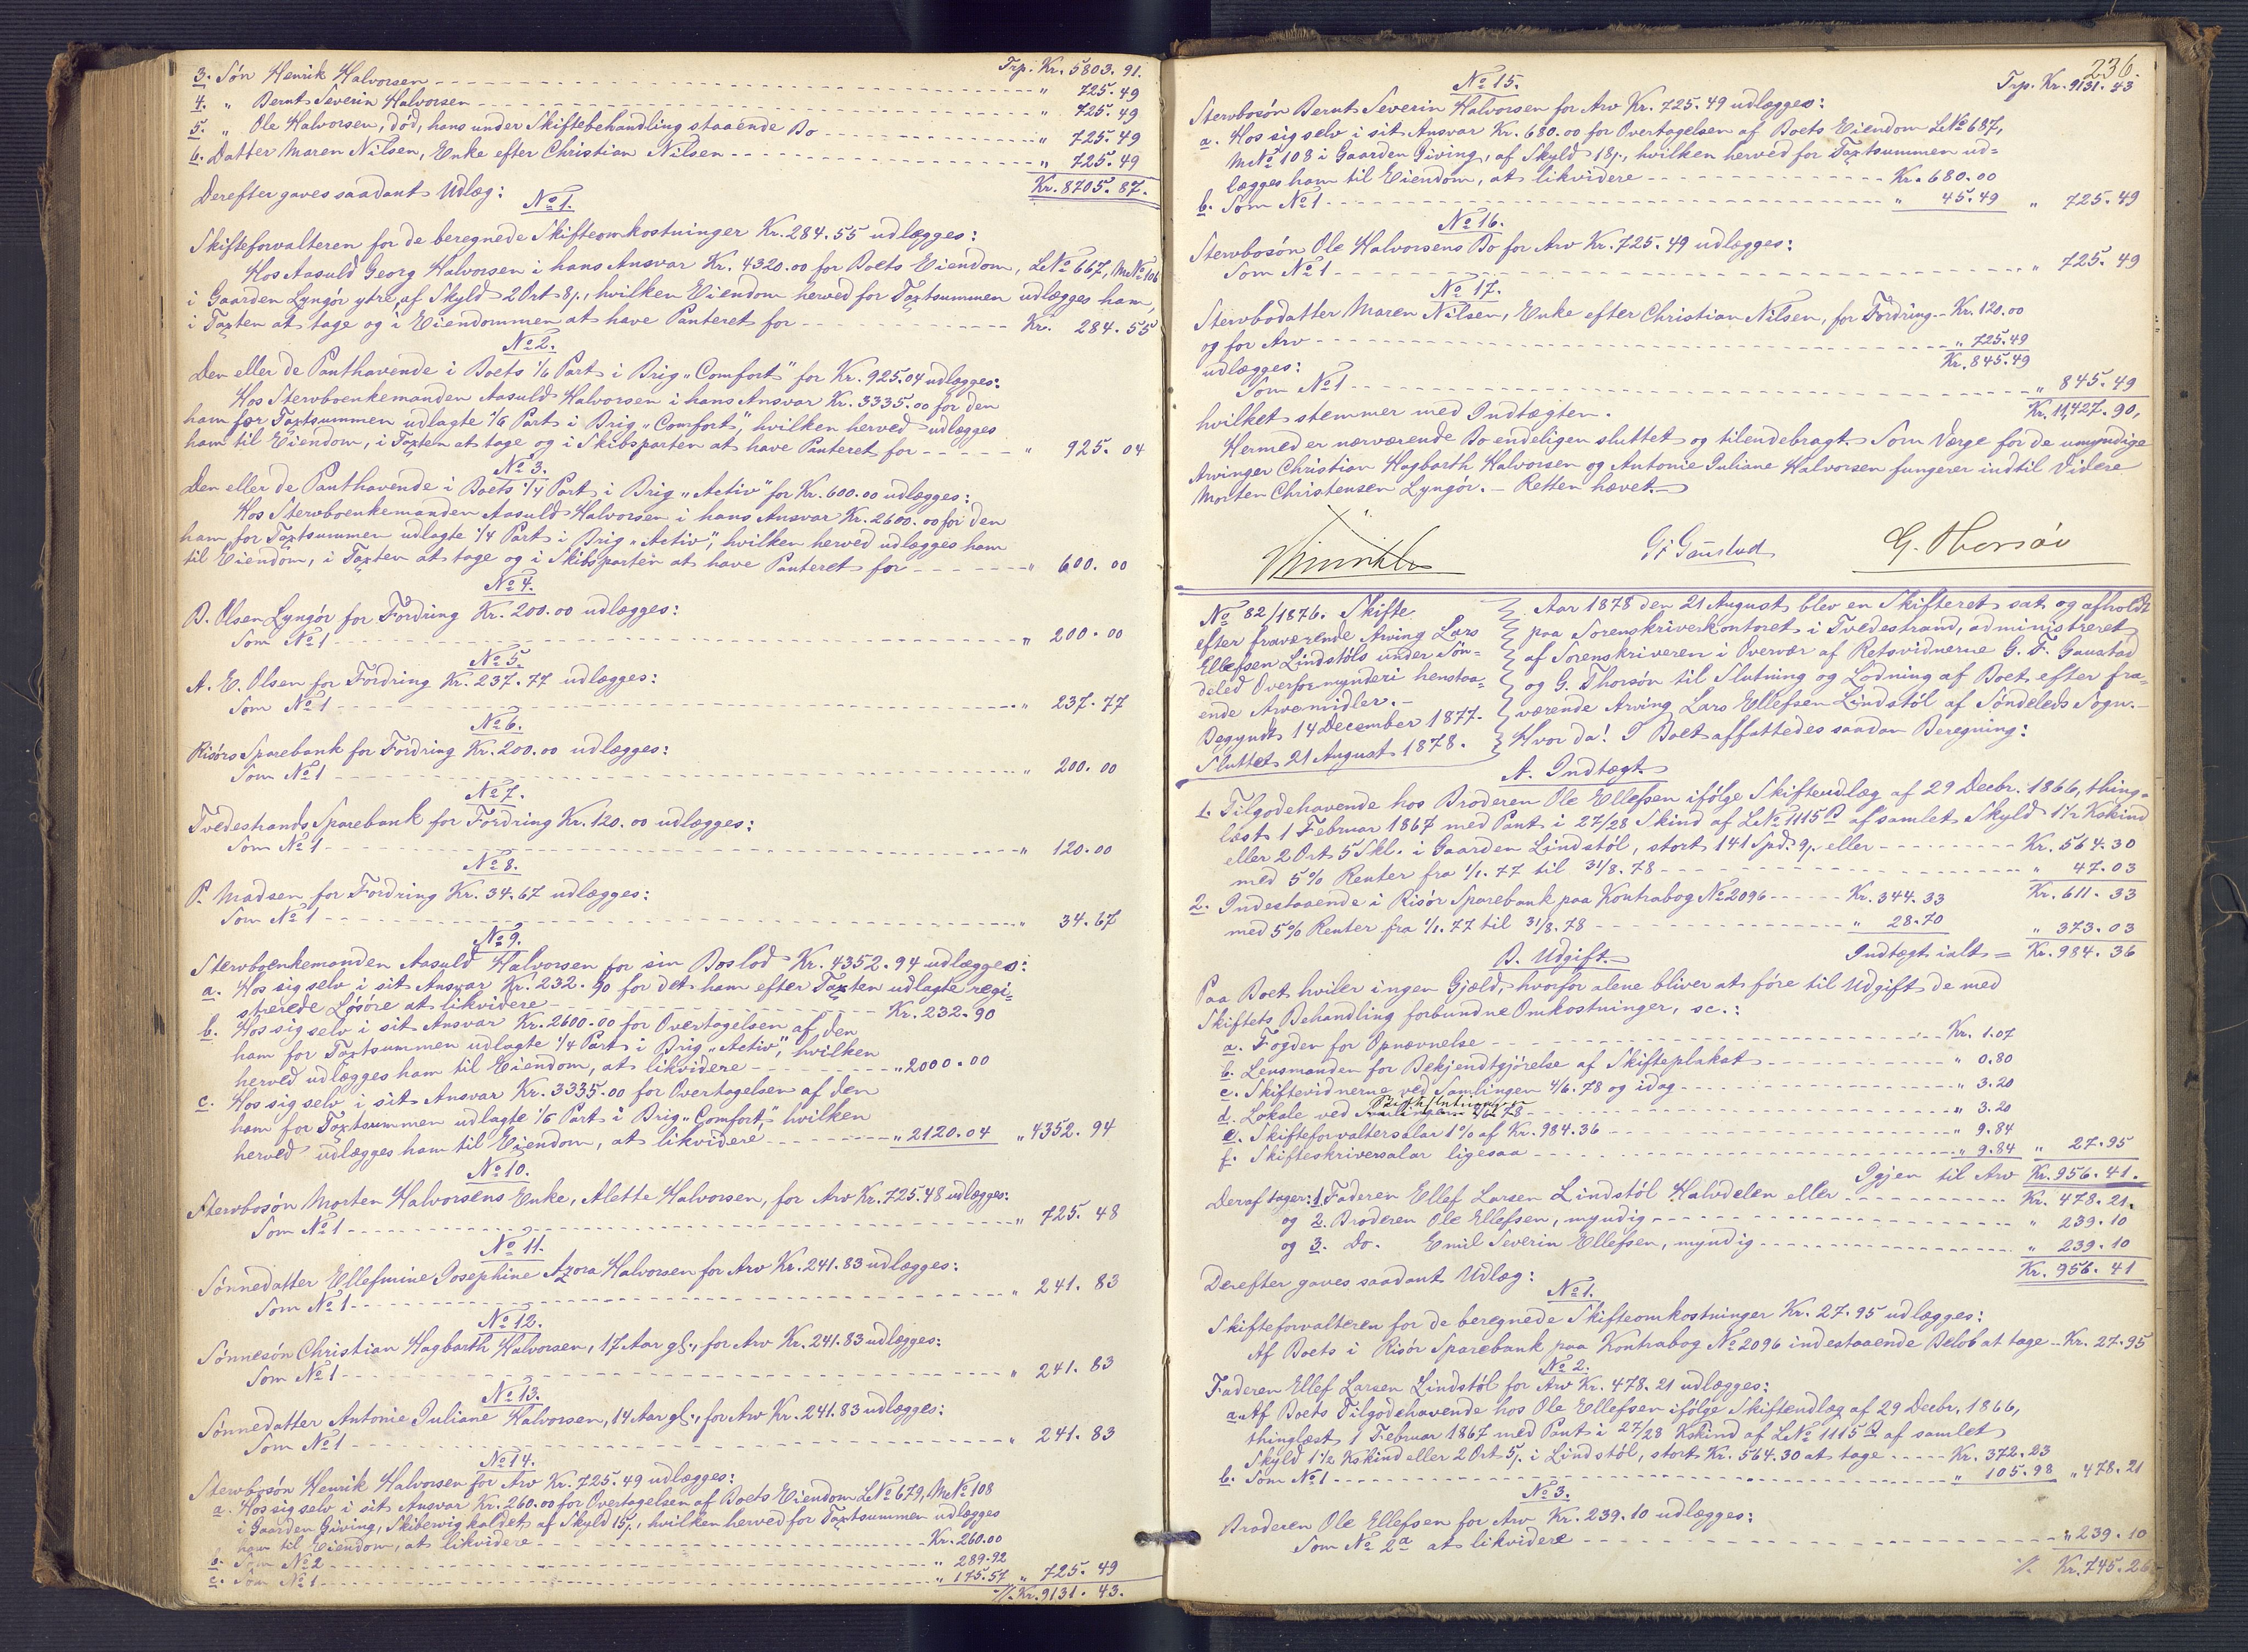 Trp. Kr. 5803. 91.
3. Søn Henrik Halvorsen " 725. 49
4. " Bernt Severin Halvorsen " 725. 49
5. " Ole Halvorsen, død, hans under Skiftebehandling staaende Bo " 725. 49
6. Datter Maren Nilsen, Enke efter Christian Nilsen " 725. 49
Kr. 8705. 87.
Derefter gaves saadant Udlæg:
No 1.
Skifteforvalteren for de beregnede Skifteomkostninger Kr. 284. 55 udlægges:
Hos Aasuld Georg Halvorsen i hans Ansvar Kr. 4320. 00 for Boets Eiendom, LNo 667, MNo 106
i Gaarden Lyngør ytre, af Skyld 2 Ort 8 ß, hvilken Eiendom herved for Taxtsummen udlægges ham,
i Taxten at tage og i Eiendommen at have Panteret for Kr. 284. 55
No 2.
Den eller de Panthavende i Boets 1/6 Part i Brig "Comfort" for Kr. 925. 04 udlægges:
Hos Stervboenkemanden Aasuld Halvorsen i hans Ansvar Kr. 3335. 00 for den
ham for Taxtsummen udlagte 1/6 Part i Brig "Comfort", hvilken herved udlægges
ham til Eiendom, i Taxten at tage og i Skibsparten at have Panteret for " 925. 04
No 3.
Den eller de Panthavende i Boets 1/4 Part i Brig "Activ" for Kr. 600. 00 udlægges:
Hos Stervboenkemanden Aasuld Halvorsen i hans Ansvar Kr. 2600. 00 for den
ham for Taxtsummen udlagte 1/4 Part i Brig "Activ", hvilken herved udlægges ham
til Eiendom, i Taxten at tage og i Skibsparten at have Panteret for " 600. 00
No 4.
B. Olsen Lyngør for Fordring Kr. 200. 00 udlægges:
Som No 1 " 200. 00
No 5.
A. E. Olsen for Fordring Kr. 237. 77 udlægges:
Som No 1 " 237. 77
No 6.
Risørs Sparebank for Fordring Kr. 200. 00 udlægges:
Som No 1 " 200. 00
No 7.
Tvedestrands Sparebank for Fordring Kr. 120. 00 udlægges:
Som No 1 " 120. 00
No 8.
P. Madsen for Fordring Kr. 34. 67 udlægges:
Som No 1 " 34. 67
No 9.
Stervboenkemanden Aasuld Halvorsen for sin Boslod Kr. 4352. 94 udlægges:
a. Hos sig selv i sit Ansvar Kr. 232. 90 for det ham efter Taxten udlagte regi=
strerede Løsøre at likvidere Kr. 232. 90
b. Hos sig selv i sit Ansvar Kr. 2600. 00 for Overtagelsen af den
ham for Taxtsummen udlagte 1/4 Part i Brig "Activ", hvilken
herved udlægges ham til Eiendom, at likvidere " 2000. 00
c. Hos sig selv i sit Ansvar Kr. 3335. 00 for Overtagelsen af den
ham for Taxtsummen udlagte 1/6 Part i Brig "Comfort", hvilken
herved udlægges ham til Eiendom, at likvidere " 2120. 04 " 4352. 94
No 10.
Stervbosøn Morten Halvorsens Enke, Alette Halvorsen, for Arv Kr. 725. 48 udlægges:
Som No 1 " 725. 48
No 11.
Sønnedatter Ellefmine Josephine Azora Halvorsen for Arv Kr. 241. 83 udlægges:
Som No 1 " 241. 83
No 12.
Sønnesøn Christian Hagbarth Halvorsen, 17 Aar gl., for Arv Kr. 241. 83 udlægges:
Som No 1 " 241. 83
No 13.
Sønnedatter Antonie Juliane Halvorsen, 14 Aar gl., for Arv Kr. 241. 83 udlægges:
Som No 1 " 241. 83
No 14.
Stervbosøn Henrik Halvorsen for Arv Kr. 725. 49 udlægges:
a. Hos sig selv i sit Ansvar Kr. 260. 00 for Overtagelsen af Boets Eiendom LNo 679, MNo 108
i Gaarden Giving, Skibervig kaldet, af Skyld 15 ß, hvilken herved for Taxtsummen udlægges
ham til Eiendom, at likvidere Kr. 260. 00
b. Som No 2 " 289. 92
c. Som No 1 " 175. 57 " 725. 49
./. Kr. 9131. 43.
236
Trp. Kr. 9131. 43
No 15.
Stervbosøn Bernt Severin Halvorsen for Arv Kr. 725. 49 udlægges:
a. Hos sig selv i sit Ansvar Kr. 680. 00 for Overtagelsen af Boets Eiendom LNo 687,
MNo 108 i Gaarden Giving, af Skyld 18 ß, hvilken herved for Taxtsummen ud=
lægges ham til Eiendom, at likvidere Kr. 680. 00
b. Som No 1 " 45. 49 " 725. 49
No 16.
Stervbosøn Ole Halvorsens Bo for Arv Kr. 725. 49 udlægges:
Som No 1 " 725. 49
No 17.
Stervbodatter Maren Nilsen, Enke efter Christian Nilsen, for Fordring Kr. 120. 00
og for Arv " 725. 49
Kr. 845. 49
udlægges:
Som No 1 " 845. 49
hvilket stemmer med Indtægten. Kr. 11,427. 90,
Hermed er nærværende Bo endeligen sluttet og tilendebragt. Som Værge for de umyndige
Arvinger Christian Hagbarth Halvorsen og Antonie Juliane Halvorsen fungerer indtil Videre
Morten Christensen Lyngør. – Retten hævet.
G F Gaustad G. Thorsøn
No 82/1876. Skifte
efter fraværende Arving Lars
Ellefsen Lindstøls under Søn=
deled Overformynderi henstaa=
ende Arvemidler. –
Begyndt 14 December 1877.
Sluttet 21 August 1878.
Aar 1878 den 21 August blev en Skifteret sat og afholdt
paa Sorenskriverkontoret i Tvedestrand, administreret
af Sorenskriveren i Overvær af Retsvidnerne G. F. Gaustad
og G. Thorsøn til Slutning og Lodning af Boet efter fra=
værende Arving Lars Ellefsen Lindstøl af Søndeleds Sogn. –
Hvor da! I Boet affattedes saadan Beregning:
A. Indtægt.
1. Tilgodehavende hos Broderen Ole Ellefsen ifølge Skifteudlæg af 29 Decbr. 1866, thing=
læst 1 Februar 1867 med Pant i 27/28 Skind af LNo 1115 b af samlet Skyld 1 1/2 Kskind
eller 2 Ort 5 Skl. i Gaarden Lindstøl, stort 141 Spd. 9 ß eller Kr. 564. 30
med 5% Renter fra 1/1. 77 til 31/8. 78 " 47. 03
Kr. 611. 33
2. Indestaaende i Risør Sparebank paa Kontrabog No 2096 Kr. 344. 33
med 5% Renter fra 1/1. 77 til 31/8. 78 " 28. 70 " 373. 03
Indtægt ialt = Kr. 984. 36
B. Udgift
Paa Boet hviler ingen Gjæld, hvorfor alene bliver at føre til Udgift de med
Skiftets Behandling forbundne Omkostninger, sc.:
a. Fogden for Opnævnelse Kr. 1. 07
b. Lensmanden for Bekjendtgjørelse af Skifteplakat " 0. 80
c. Skiftevidnerne ved Samlingen 4/6. 78 og idag " 3. 20
d. Lokale ved " 3. 20
e. Skifteforvaltersalar 1% af Kr. 984. 36 " 9. 84
f. Skifteskriversalar ligesaa " 9. 84 " 27. 95
Igjen til Arv Kr. 956. 41.
Deraf tager: 1. Faderen Ellef Larsen Lindstøl Halvdelen eller Kr. 478. 21.
og 2. Broderen Ole Ellefsen, myndig " 239. 10
og 3. Do. Emil Severin Ellefsen, myndig " 239. 10
Kr. 956. 41
Derefter gaves saadant Udlæg:
No 1.
Skifteforvalteren for de beregnede Skifteomkostninger Kr. 27. 95 udlægges:
Af Boets i Risør Sparebank paa Kontrabog No 2096 indestaaende Beløb at tage Kr. 27. 95
No 2.
Faderen Ellef Larsen Lindstøl for Arv Kr. 478. 21 udlægges:
a. Af Boets Tilgodehavende hos Ole Ellefsen ifølge Skifteudlæg af 29 Decbr. 1866,
thinglæst 1 Februar 1867 med Pant i 27/28 Kskind af LNo 1115 b af samlet
Skyld 1 1/2 Kskind eller 2 Ort 5 ß i Lindstøl, stort Kr. 564. 30 at tage Kr. 372. 23
b. Som No 1 " 105. 98 " 478. 21
No 3.
Broderen Ole Ellefsen for Arv Kr. 239. 10 udlægges:
Som No 2 a at likvidere " 239. 10
./. Kr. 745. 26